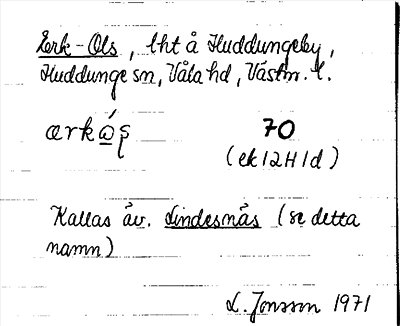 Erk-Ols, lht å Huddungeby,
Huddunge sn, Våla hd, Västm. l.
ærkɷ́ʂ 70
(ek 12H1d)
Kallas äv. Lindesnäs (se detta
namn)
L. Jonsson 1971